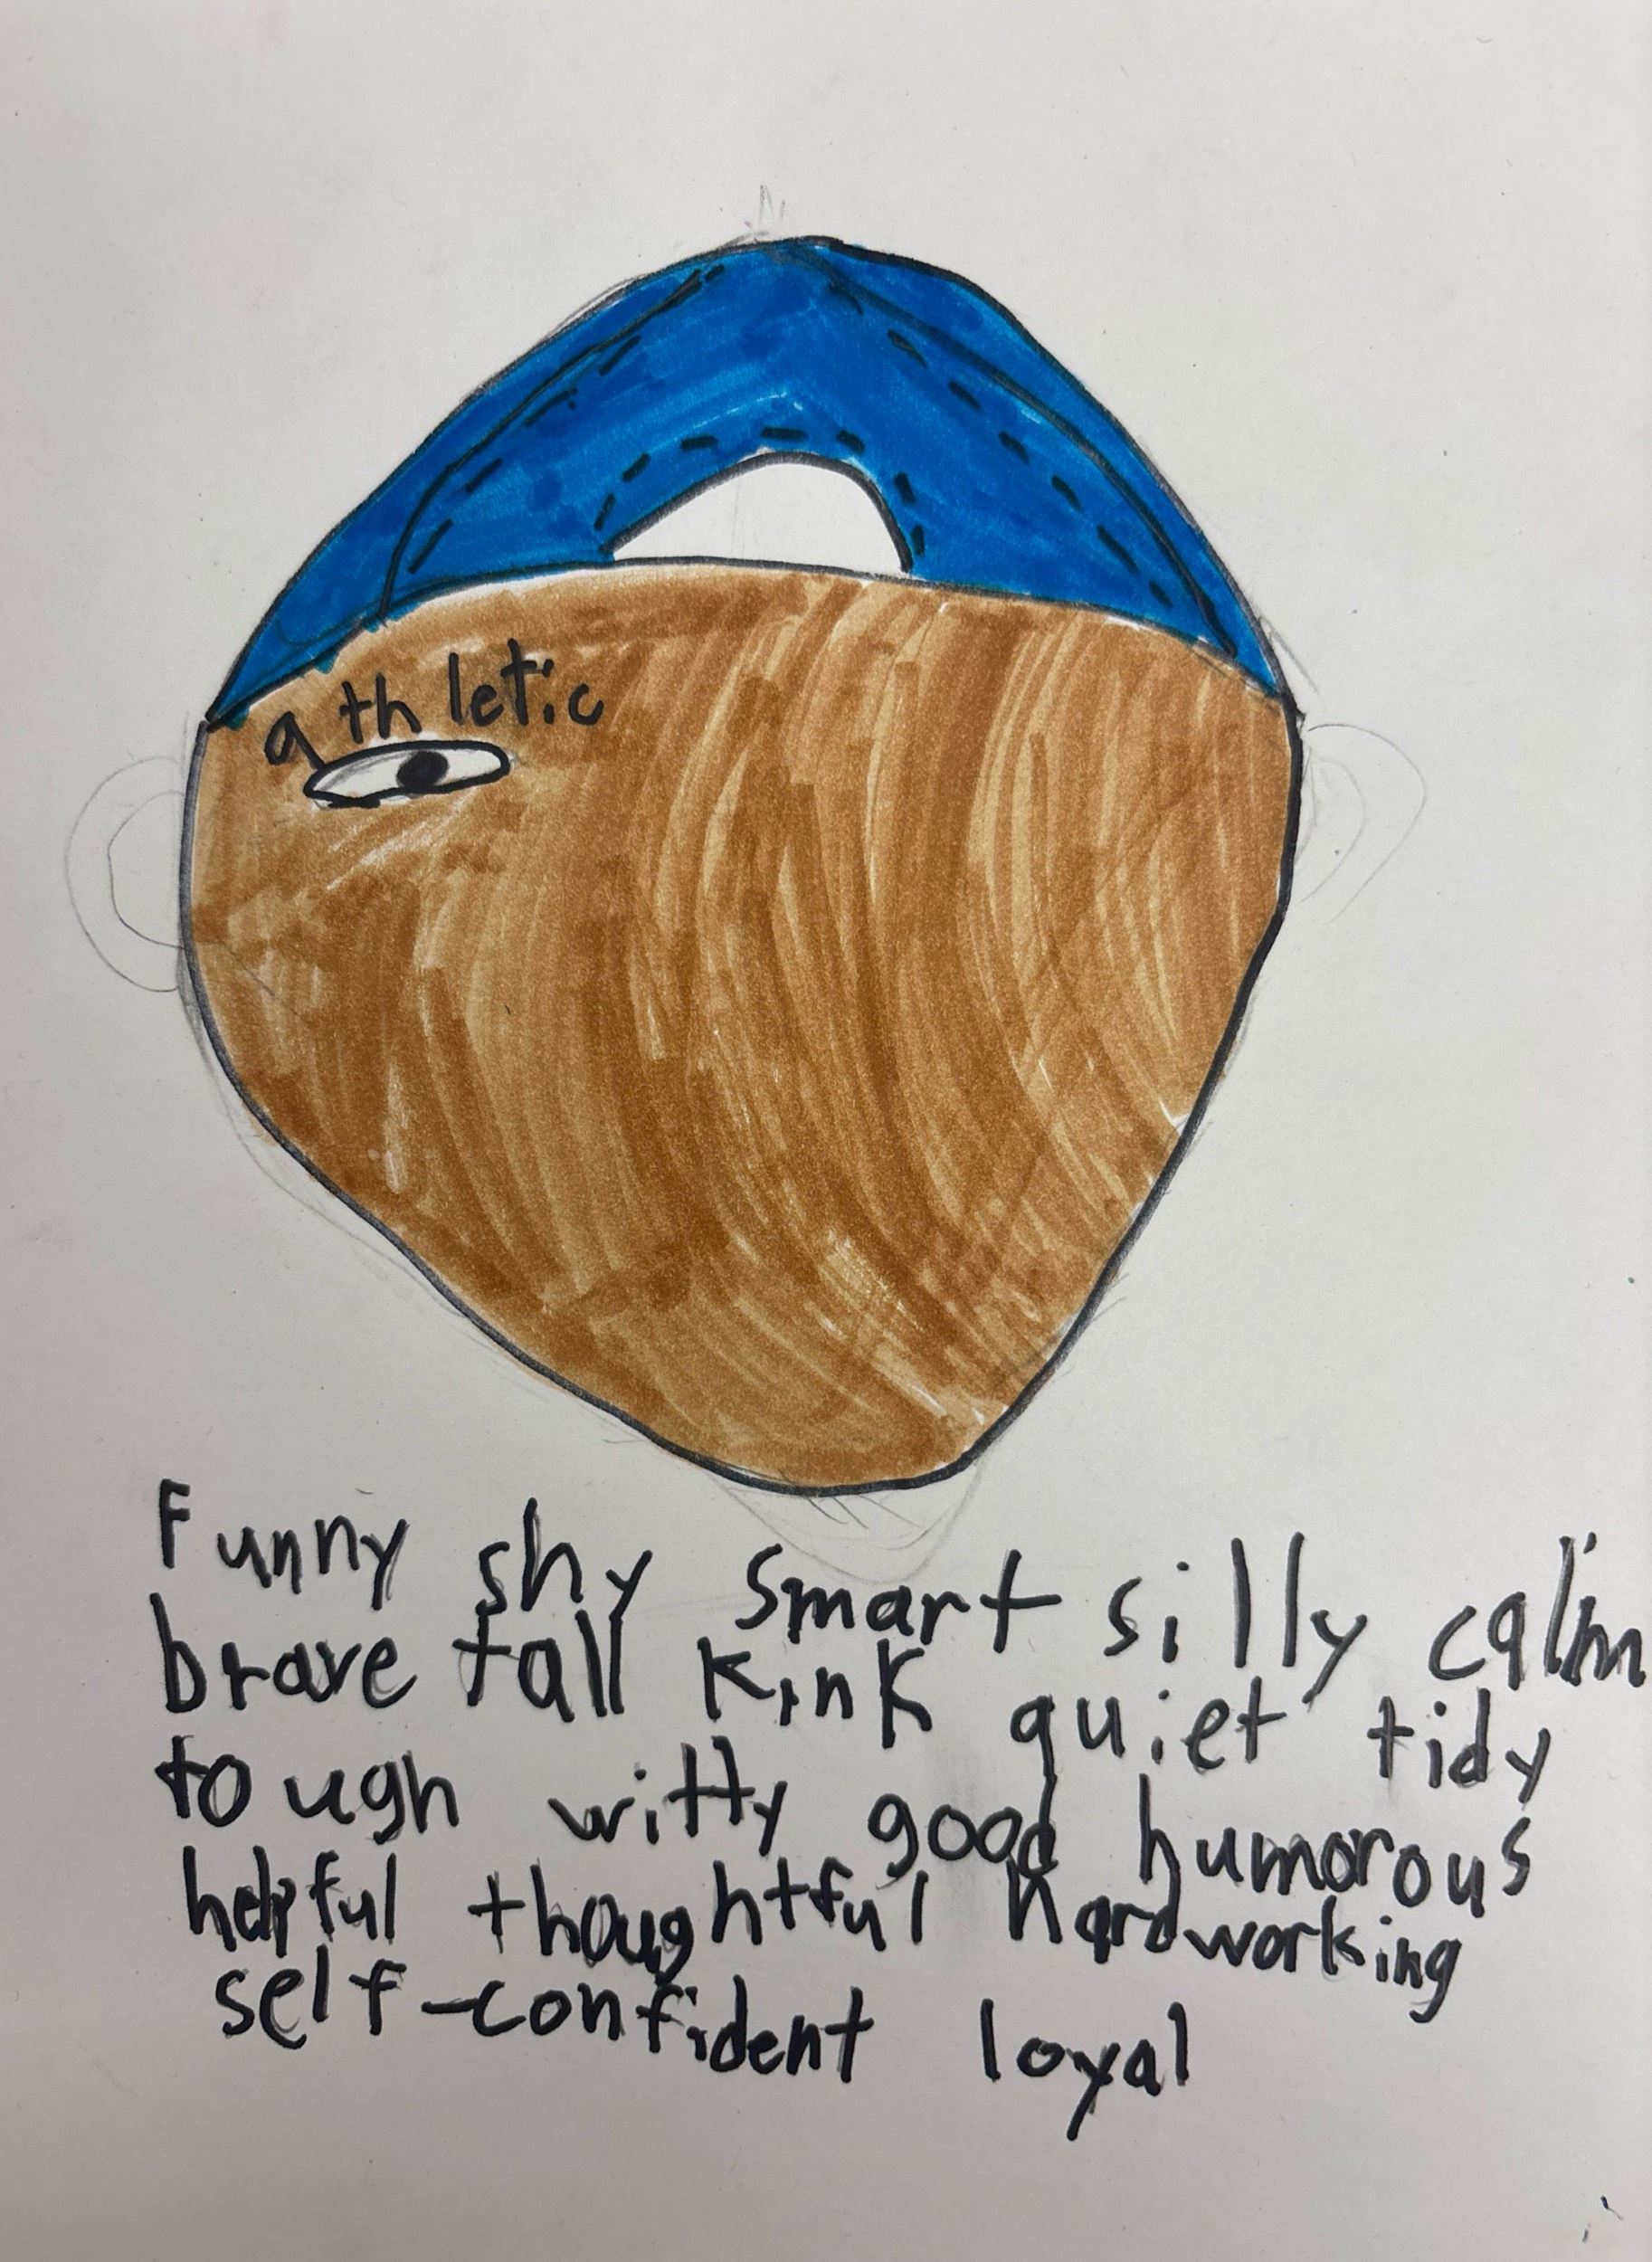 athletic
Funny shy smart silly calm
brave tall kink quiet tidy
tough witty good humorous
helpful thoughtful hardworking
self-confident loyal